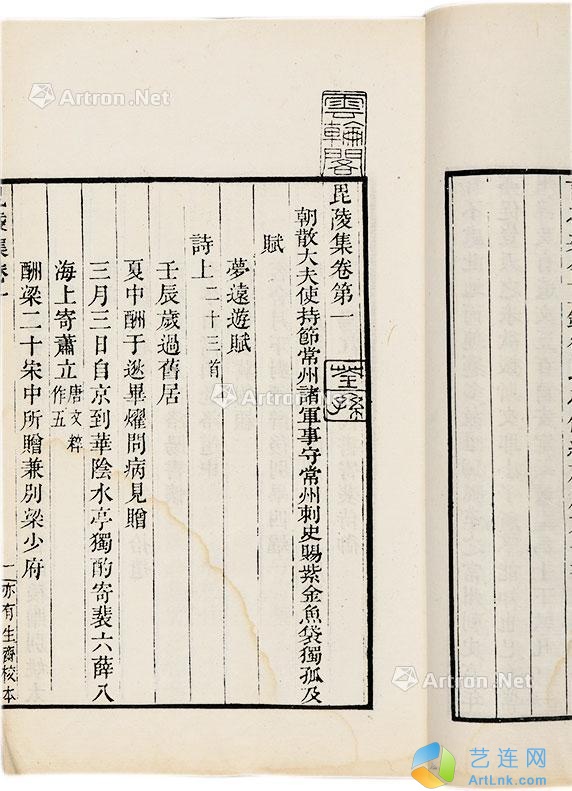 雲輪閣
毘陵集卷第一
荃孫
朝散大夫使持節常州諸軍事守常州刺史賜紫金魚袋獨孤及
賦
夢遠遊賦
詩上二十三首
壬辰歲過舊居
夏中酬于逖畢燿問病見贈
三月三日自京到華陰水亭獨酌寄裴六薛八
海上寄蕭立唐文粹作五
酬梁二十宋中所贈兼別梁少府
亦有生齋校本
Artron.Net
Artron.Net
Artron.Net
Artron.Net
艺连网
ArtLnk.Com